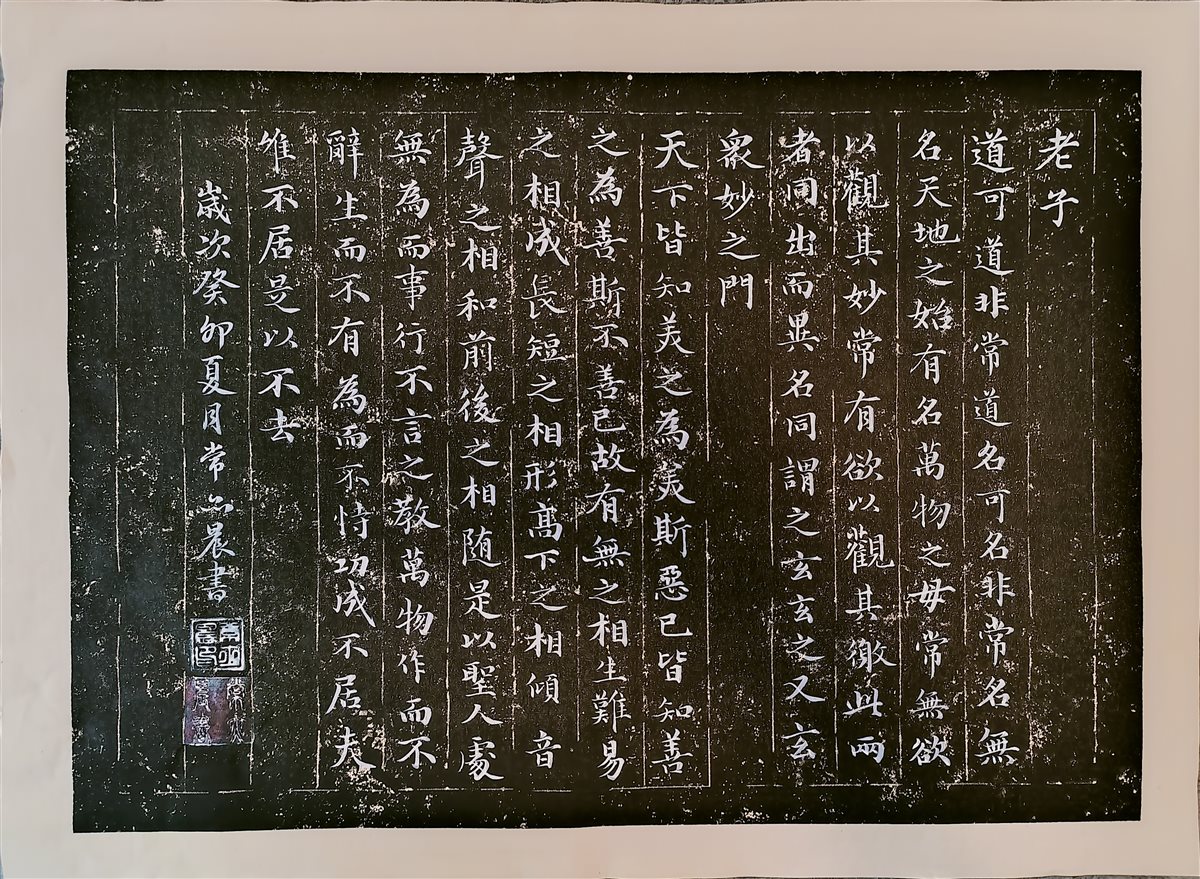 老子
道可道非常道名可名非常名無
名天地之始有名萬物之母常無欲
以觀其妙常有欲以觀其徼此兩
者同出而異名同謂之玄玄之又玄
衆妙之門
天下皆知美之為美斯惡已皆知善
之為善斯不善已故有無之相生難易
之相成長短之相形高下之相傾音
聲之相和前後之相随是以聖人處
無為而事行不言之教萬物作而不
辭生而不有為而不恃功成不居夫
惟不居是以不去
歲次癸卯夏月常 晨書